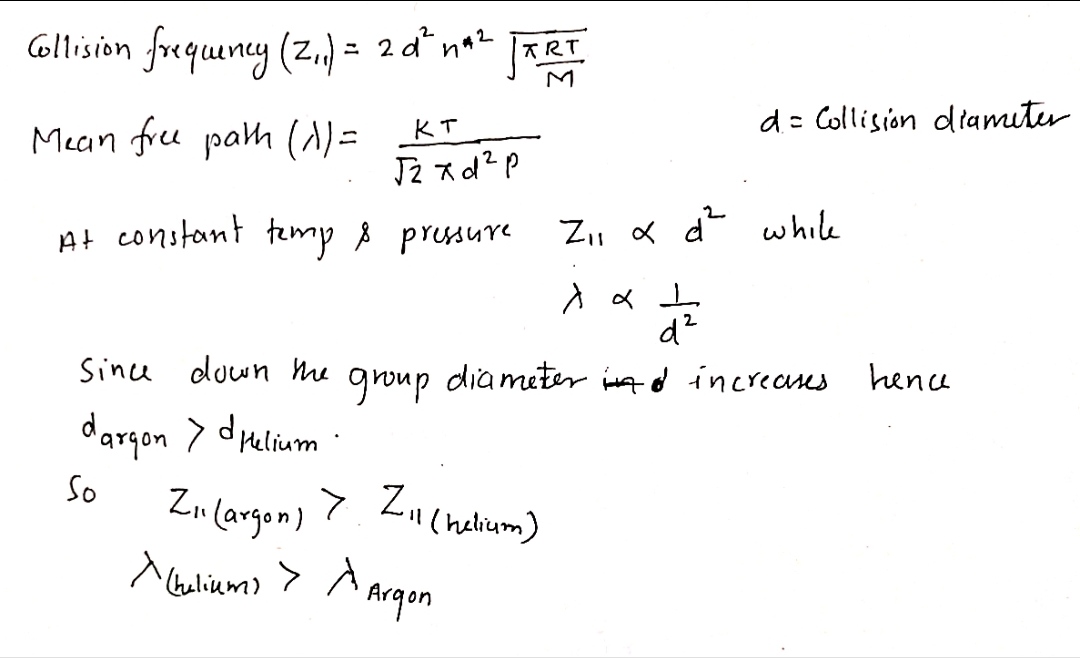 Collision frequency (Z₁₁) = 2 d² n*² √(πRT/M)
Mean free path (λ) = KT / √2 π d² P
d = Collision diameter
At constant temp & pressure Z₁₁ ∝ d² while
λ ∝ 1/d²
Since down the group diameter increases hence
dargon > dHelium.
So Z₁₁(argon) > Z₁₁(helium)
λ(helium) > λArgon